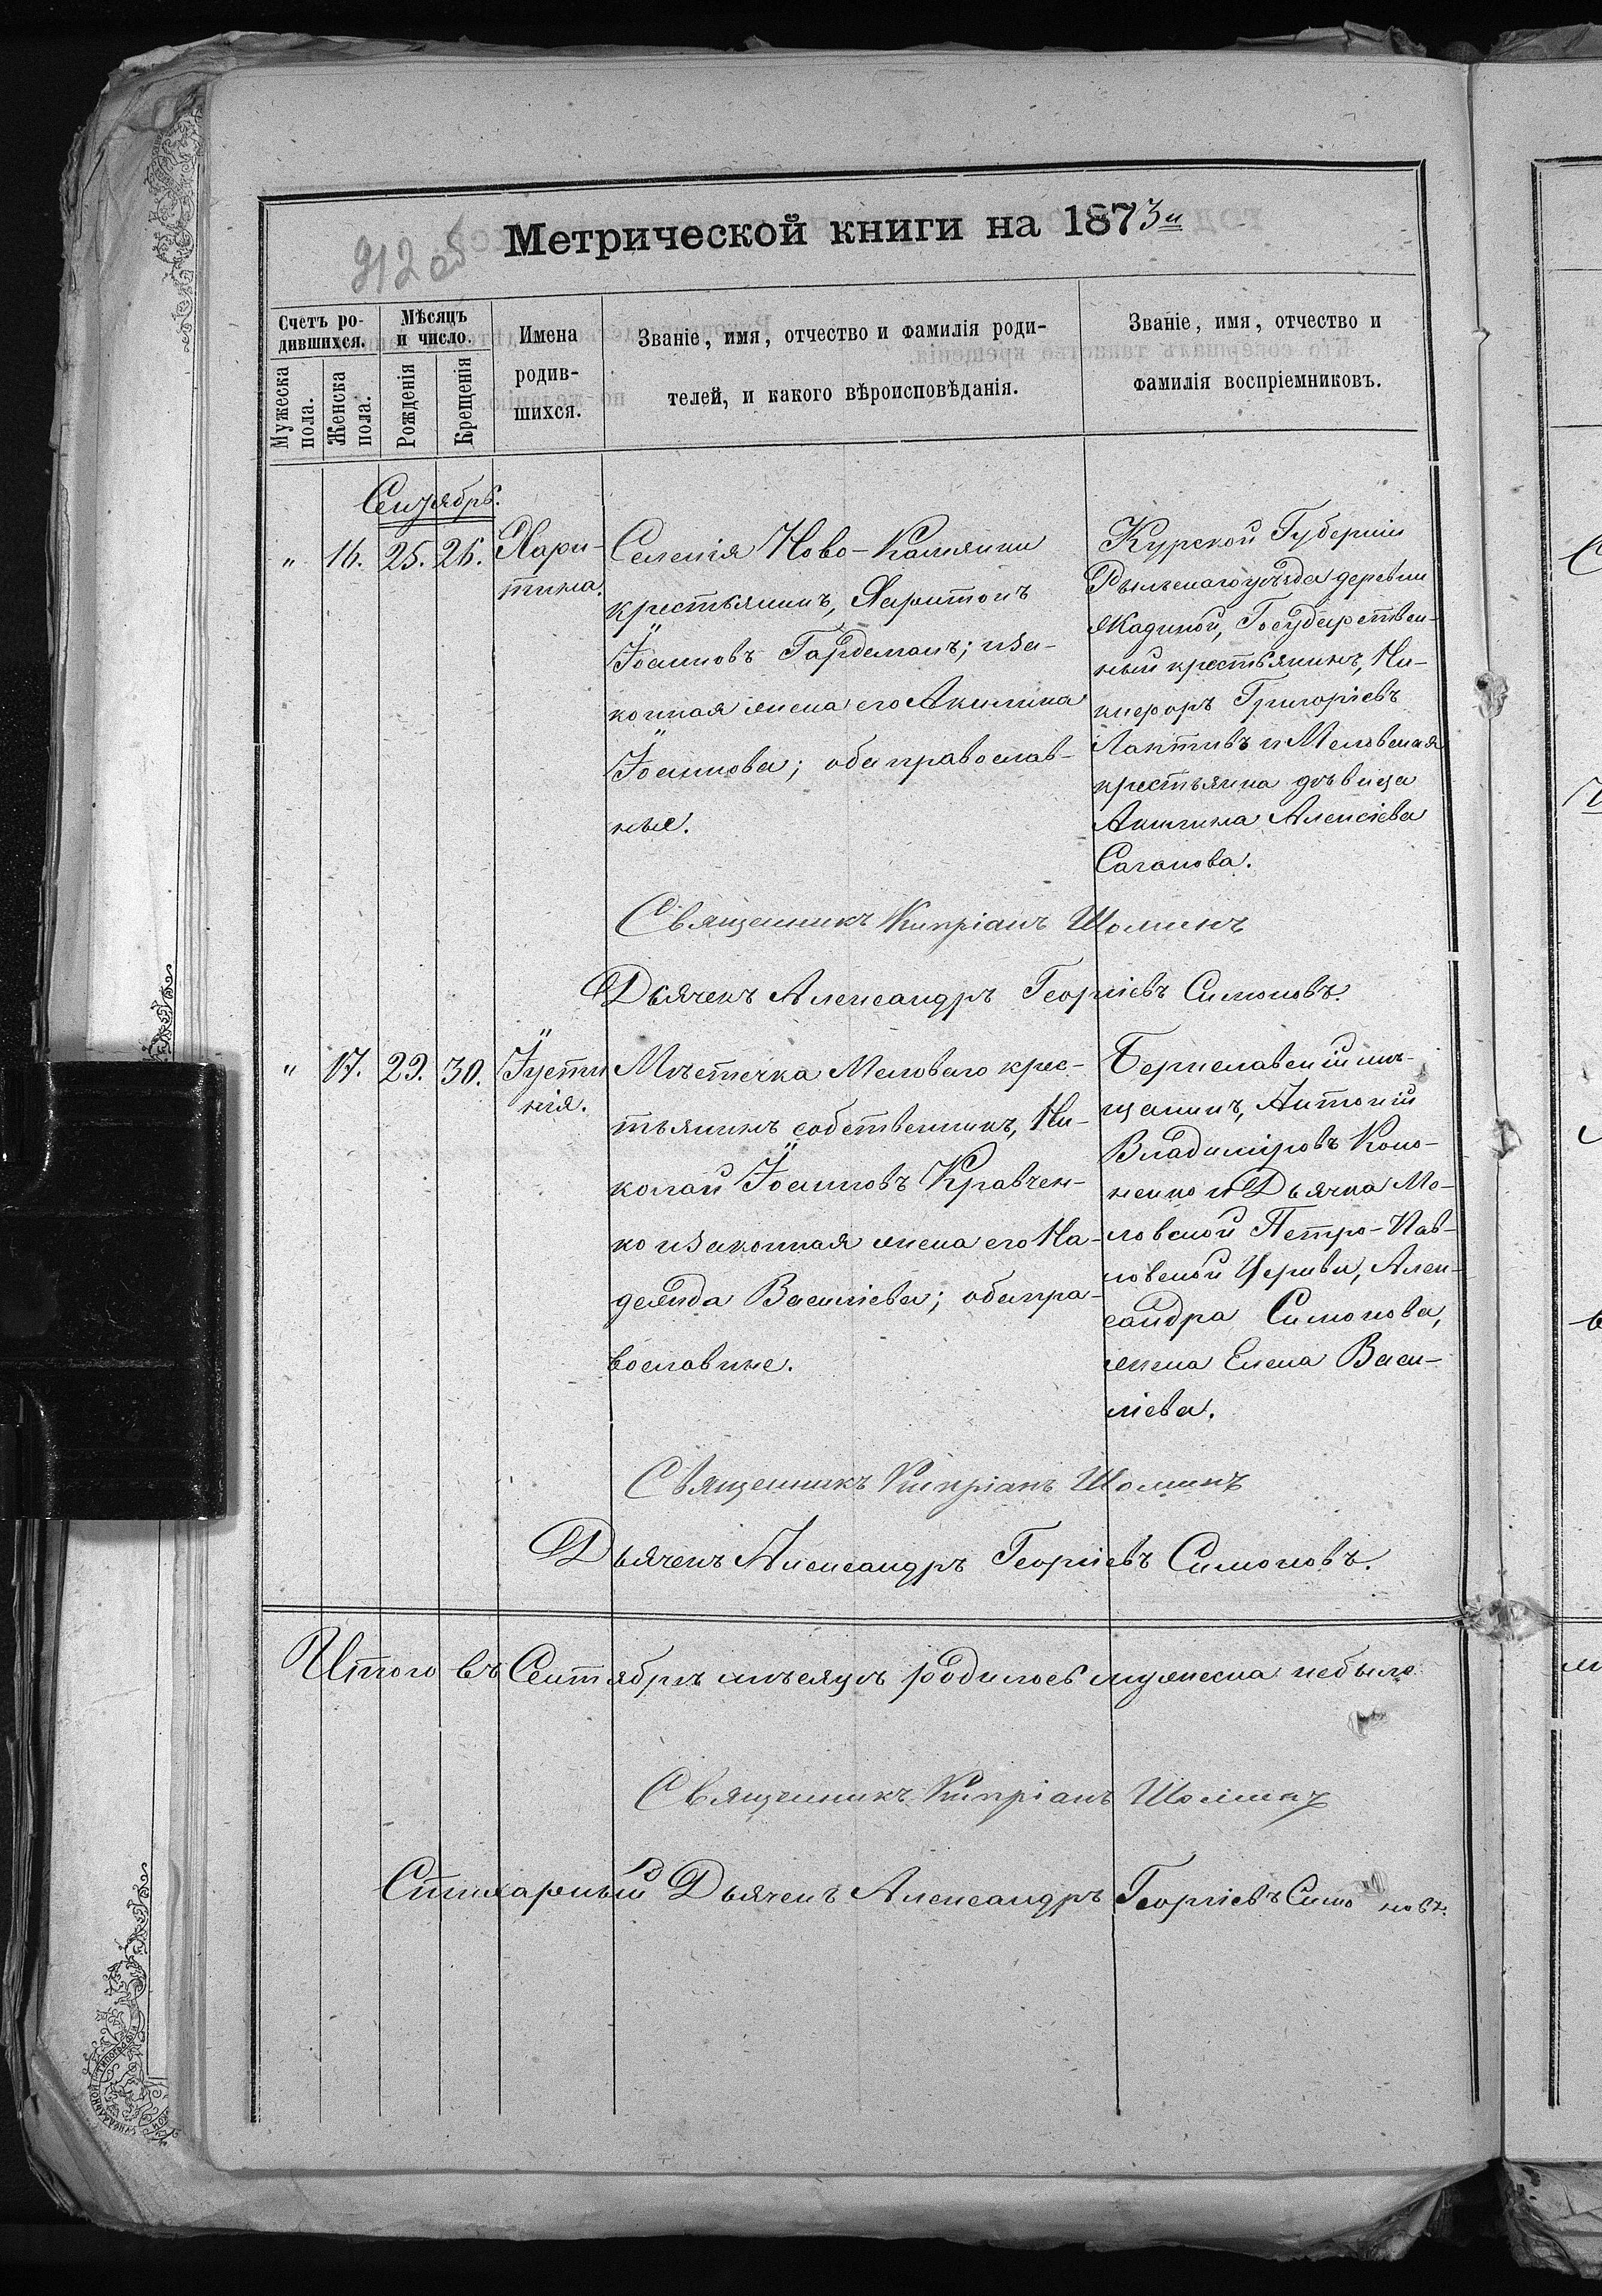 912 об
Метрической книги на 1873й
Счетъ ро-
дившихся.
Мѣсяцъ
и число.
Имена
родив-
шихся.
Званіе, имя, отчество и фамилія роди-
телей, и какого вѣроисповѣданія.
Званіе, имя, отчество и
фамилія воспріемниковъ.
Мужеска
пола.
Женска
пола.
Рожденія
Крещенія
Сентябрь.
" 16. 25. 26.
Хари-
тина.
Селенія Ново-Каменки
крестьянинъ, Харитонъ
Іоанновъ Гардеманъ; и за-
конная жена его Акилина
Іоаннова; оба православ-
ные.
Курской Губерніи
Рыльскаго уѣзда деревни
Жадиной, Государствен-
ный крестьянинъ, Ни-
кифоръ Григоріевъ
Лактивъ и Меловская
крестьянка дѣвица
Акилина Алексіева
Саганова.
Священникъ Кипріанъ Шоминъ
Дьячекъ Александръ Георгіевъ Симоновъ.
" 17. 29. 30.
Іусти
нія.
Мѣстечка Меловаго крес-
тьянинъ собственникъ, Ни-
колай Іоанновъ Кравчен-
ко и законная жена его На-
дежда Василіева; оба пра-
вославные.
Бериславскій мѣ-
щанинъ, Антоній
Владиміровъ Коно-
ненко и Дьячка Ме-
ловской Петро-Пав-
ловской Церкви, Алек-
сандра Симонова,
жена Елена Васи-
ліева.
Священникъ Кипріанъ Шоминъ
Дьячекъ Александръ Георгіевъ Симоновъ.
Итого въ Сентябрѣ мѣсяцѣ родилось мужеска небыло
Священникъ Кипріанъ Шоминъ
Стихарный Дьячекъ Александръ Георгіевъ Симоновъ.